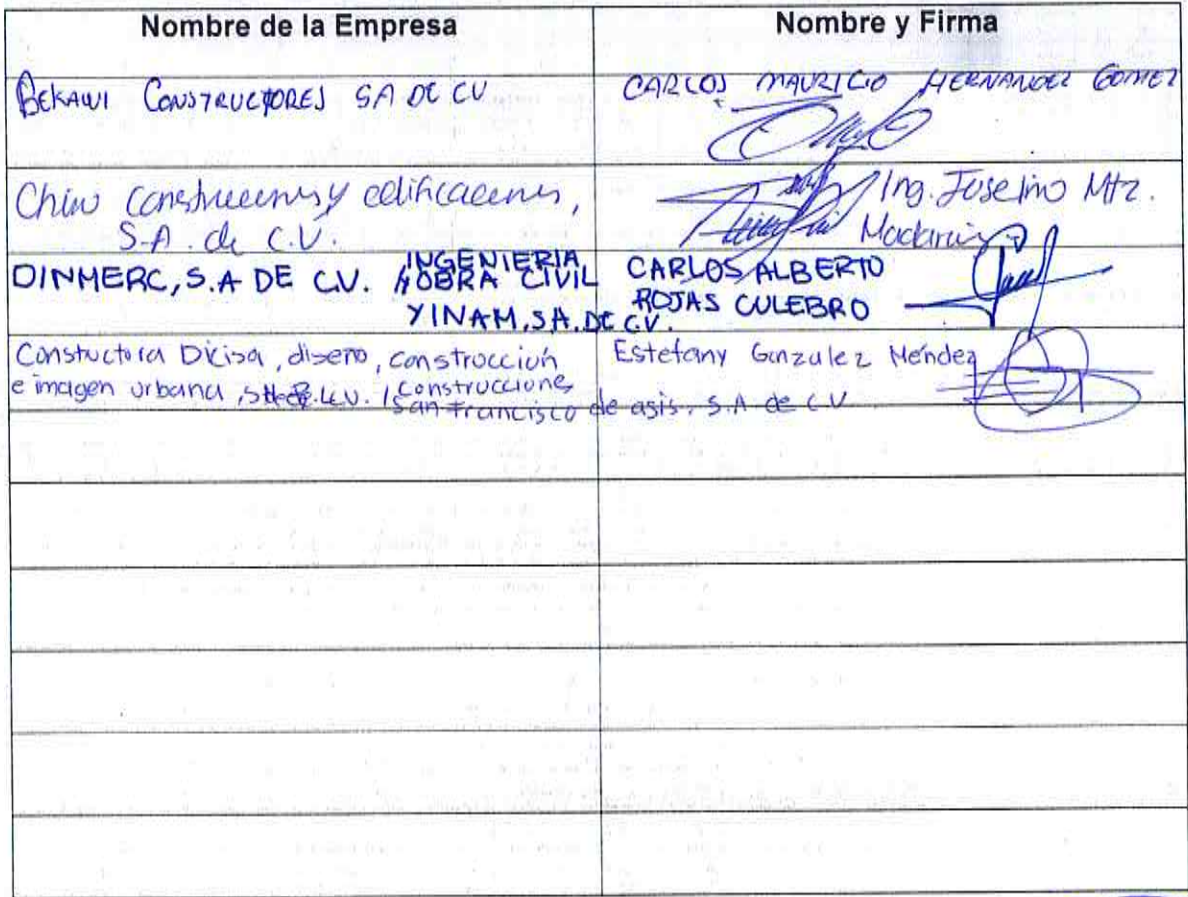 Nombre de la Empresa
Nombre y Firma
BEKAWI CONSTRUCTORES SA DE CV
CARLOS MAURICIO HERNANDEZ GOMEZ
construcciones y edificaciones,
S.A. de C.V.
Ing. Joselino Mtz.
DINMERC, S.A DE C.V. / INGENIERIA
OBRA CIVIL
YINAM, SA. DE C.V.
CARLOS ALBERTO
ROJAS CULEBRO
Constuctora Dicisa, diseño, construcción
e imagen urbana, SA de C.V. / Construcciones
San Francisco de asis. S.A de C.V
Estefany Gonzalez Méndez